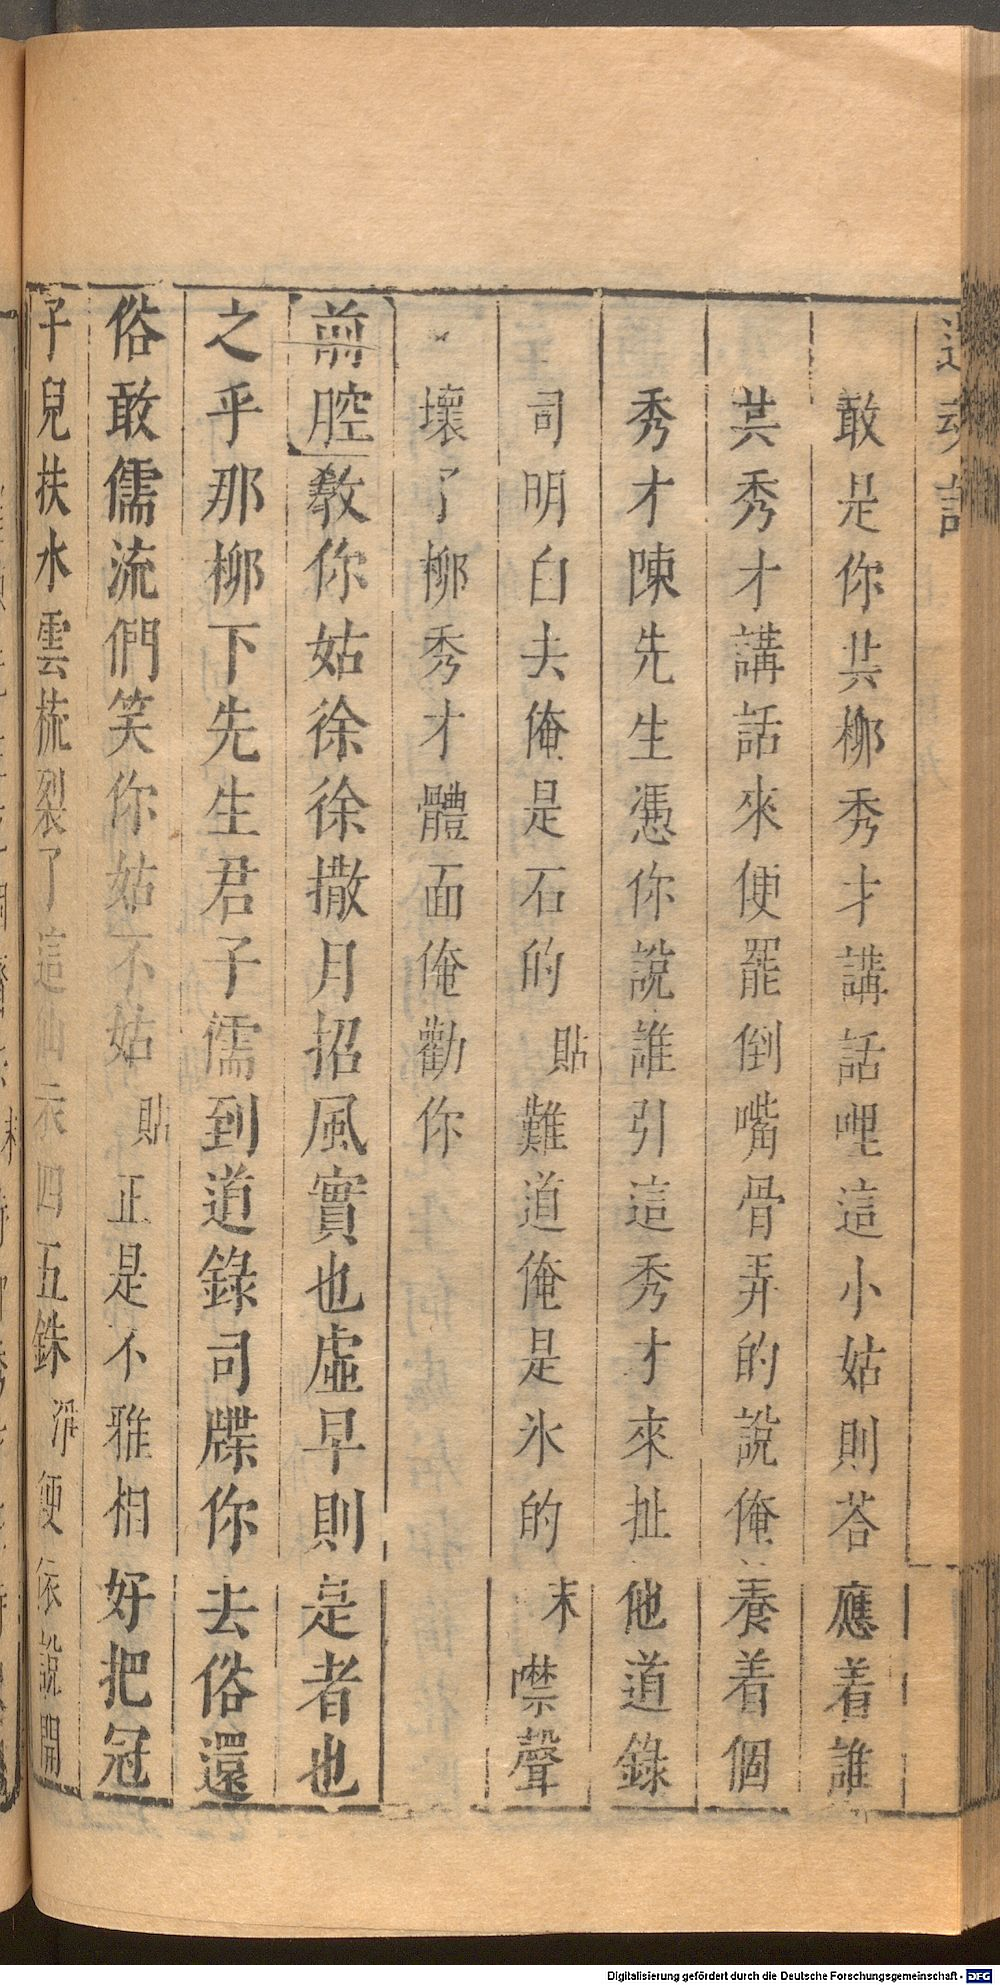 還魂記
敢是你共柳秀才講話哩這小姑則荅應着誰
共秀才講話來便罷倒嘴骨弄的說俺養着個
秀才陳先生憑你說誰引這秀才來扯他道錄
司明白去俺是石的貼難道俺是氷的末噤聲
壞了柳秀才體面俺勸你
前腔教你姑徐徐撒月招風實也虛早則是者也
之乎那柳下先生君子儒到道錄司牒你去俗還
俗敢儒流們笑你姑不姑貼正是不雅相好把冠
子兒扶水雲梳裂了這仙衣四五銖淨便依說開
Digitalisierung gefördert durch die Deutsche Forschungsgemeinschaft - DFG